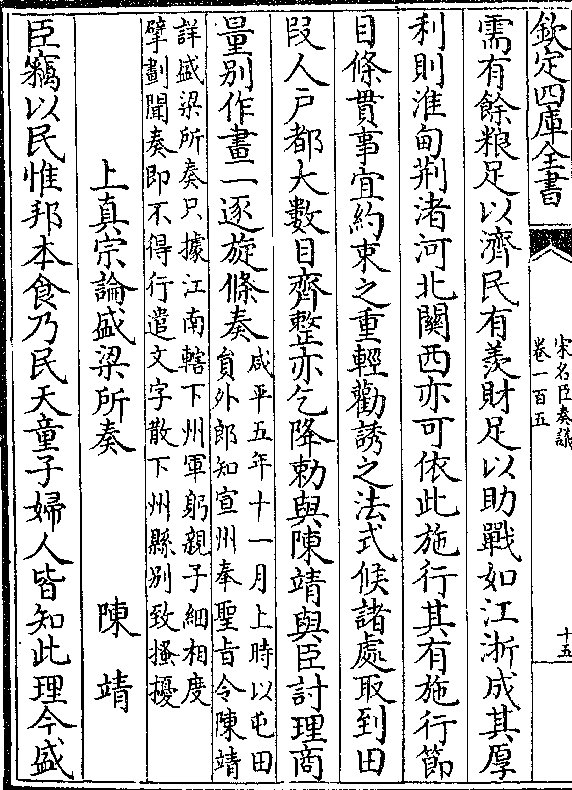 欽定四庫全書
宋名臣奏議
卷一百五
十五
需有餘粮足以濟民有羡財足以助戰如江浙成其厚
利則淮甸荆渚河北關西亦可依此施行其有施行節
目條貫事宜約束之重輕勸誘之法式候諸處取到田
段人戸都大數目齊整亦乞降勅與陳靖與臣討理商
量别作畫一逐旋條奏咸平五年十一月上時以屯田
貟外郎知宣州奉聖旨令陳靖
詳盛梁所奏只據江南轄下州軍躬親子細相度
擘劃聞奏即不得行遣文字散下州縣别致搔擾
上真宗論盛梁所奏 陳靖
臣竊以民惟邦本食乃民天童子婦人皆知此理今盛